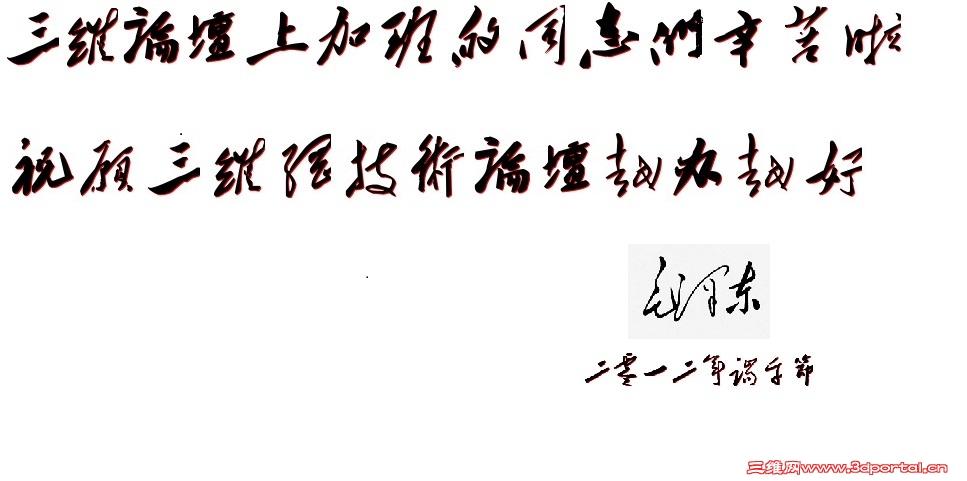 三維論壇上加班的同志們辛苦啦
祝願三維網技術論壇越办越好
毛泽东
二零一二年端午節
三维网www.3dportal.cn